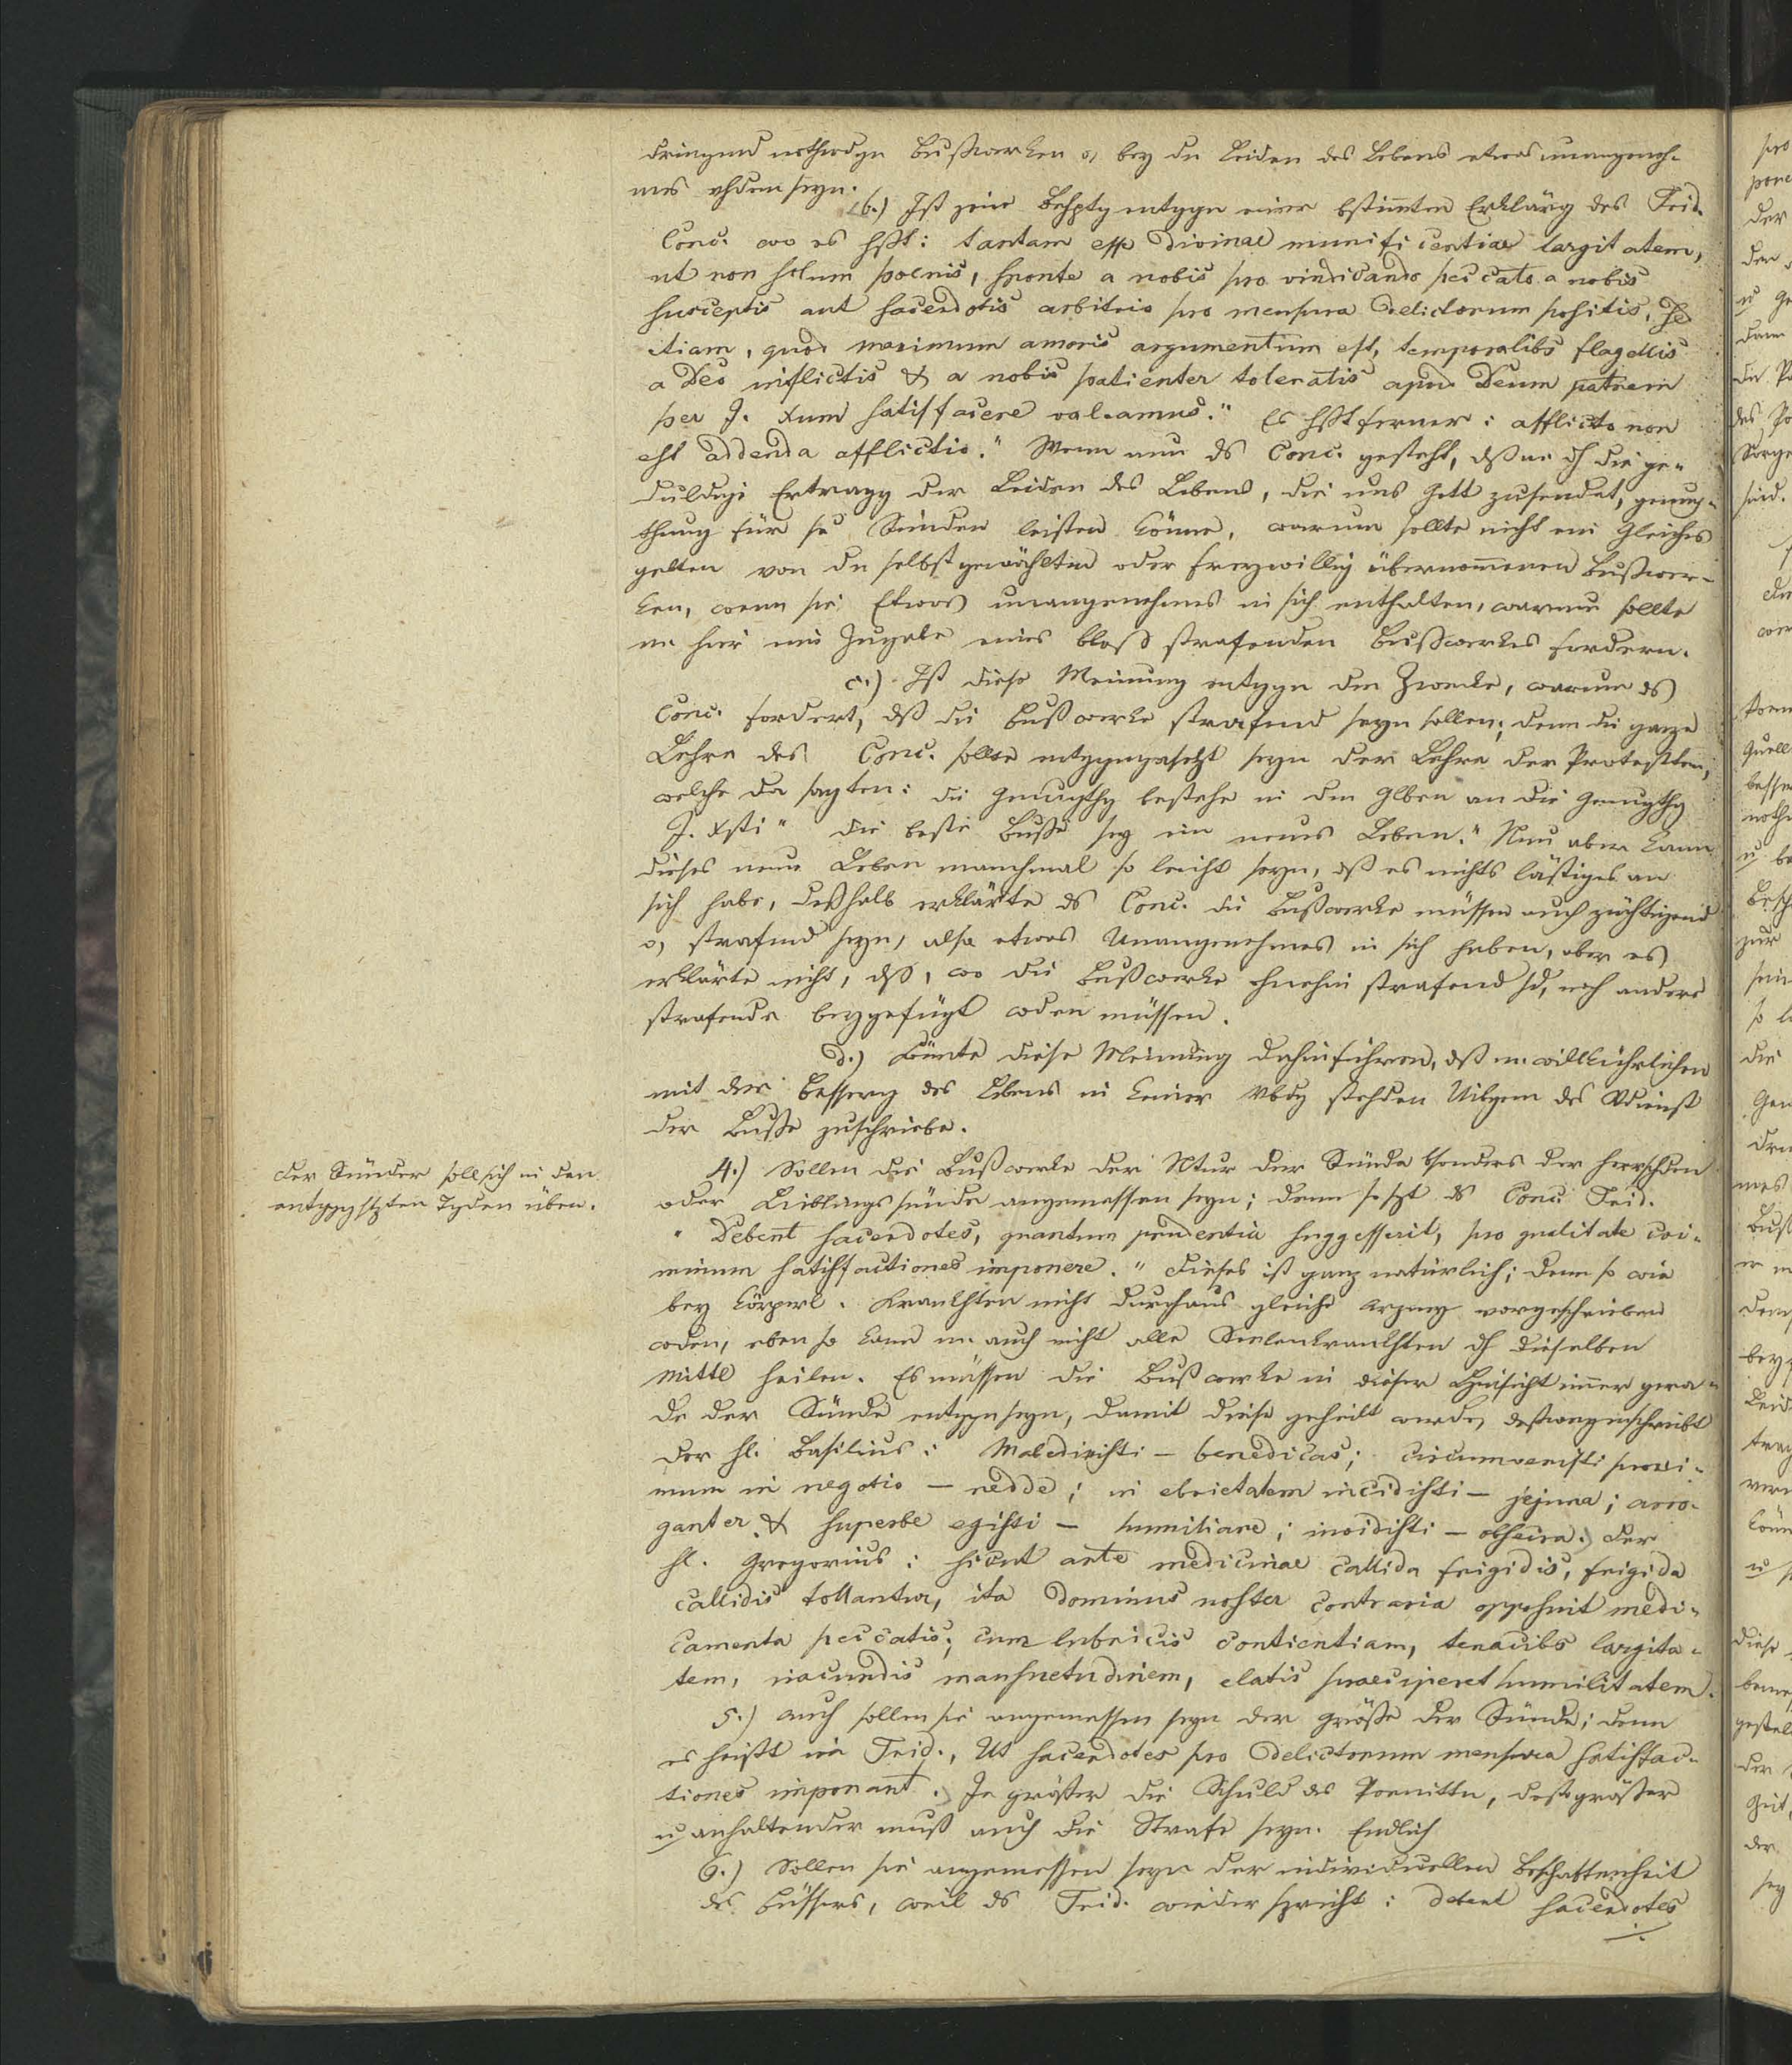 dringend nothwdgn Bußwerken o, bey dn Leiden des Lebens etwas unangeneh-
mes vhden seyn.
b.) Ist jene Behptg entggn einer bstimten Erklärg des Trid.
Conc. wo es hßt: tantam esse divinae munificentiae largitatem,
ut non solum poenis, sponte a nobis pro vindicando peccato a nobis
susceptis aut sacerdotis arbitrio pro mensura delictorum positis, sed
etiam, quod maximum amoris argumentum est, temporalibs flagellis
a Deo inflictis & a nobis patienter toleratis apud Deum patrem
per J. Xum satisfacere valeamus." Es hßt ferner: afflicto non
est addenda afflictio." Wenn nun ds Conc. gesteht, dß m dh die ge-
duldigi Ertragg der Leiden des Lebens, die uns Gott zusendet, genug-
thuug für se Sünden leisten könne, warum sollte nicht ein Gleiches
gelten von dn selbstgewählten oder freywillig übernommenen Bußwer-
ken, wenn sie Etwas unangenehmes in sich enthalten, warum sollte
m hier eine Zugabe eines bloß strafenden Bußwerkes fordern.
c.) Ist diese Meinung entggn dem Zwecke, warum ds
Conc. fordert, dß die Bußwerke strafend seyn sollen; denn die ganze
Lehre des Conc. sollte entggngesetzt seyn der Lehre der Protestten,
welche da sagten: die Genugthg bestehe in dem Glben an die Genugthg
J. Xsti" die beste Buße sey ein neues Leben." Nun aber kann
dieses neue Leben manchmal so leicht seyn, dß es nichts lästiges an
sich habe, deßhalb erklärte ds Conc. die Bußwerke müssen auch züchtigend
o, strafend seyn, also etwas Unangenehmes in sich haben, aber es
erklärte nicht, dß, wo die Bußwerke ohnehin strafend sd, noch andere
strafende beygefügt wden müssen.
d.) Könnte diese Meinung dahinführen, dß m. willkührlichen
mit der Besserg des Lebens in keiner Vbdg stehden Uibgen das Vdienst
der Buße zuschriebe.
Der Sünder soll sich in den
entggstzten Tgden üben.
4.) Sollen die Bußwerke der Ntur der Sünde bsonders der herrschden
oder Lieblingssünde angemessen seyn; denn so sgt ds Conc. Trid.
" Debent sacerdotes, quantum prudentia suggesserit, pro qualitate cri-
minum satisfactiones imponere." Dieses ist ganz natürlich; denn so wie
bey körperl. Krankhten nicht durchaus gleiche Arzney vorgeschrieben
wden, eben so kann m. auch nicht alle Seelenkrankhten dh dieselben
Mittel heilen. Es müssen die Bußwerke in dieser Hinsicht immer gera-
de der Sünde entggnseyn, damit diese geheilt werde, deßwegen schreibt
der hl. Basilius: Maledixisti – benedicas; circumvenisti proxi-
mum in negotio – redde; in ebrietatem incidisti – jejuna; arro-
ganter & superbe egisti – humiliare; invidisti – obsecra. Der
hl. Gregorius: sicut arte medicinae callida frigidis, frigida
callidis tollantur, ita Dominus noster contraria opposuit medi-
camenta peccatis, cum lubricis continentiam, tenacibs largita-
tem, iracundis mansuetudinem, elatis praeciperet humilitatem.
5.) Auch sollen sie angemessen seyn der Größe der Sünde; denn
es heißt im Trid., Ut sacerdotes pro delictorum mensura satisfac-
tiones imponant. Je größer die Schuld des Poenitten, desto größer
u anhaltender muß auch die Strafe seyn. Endlich
6.) Sollen sie angemessen seyn der individuellen Beschaffenheit
des Büssers, weil ds Trid. wieder spricht: debent sacerdotes